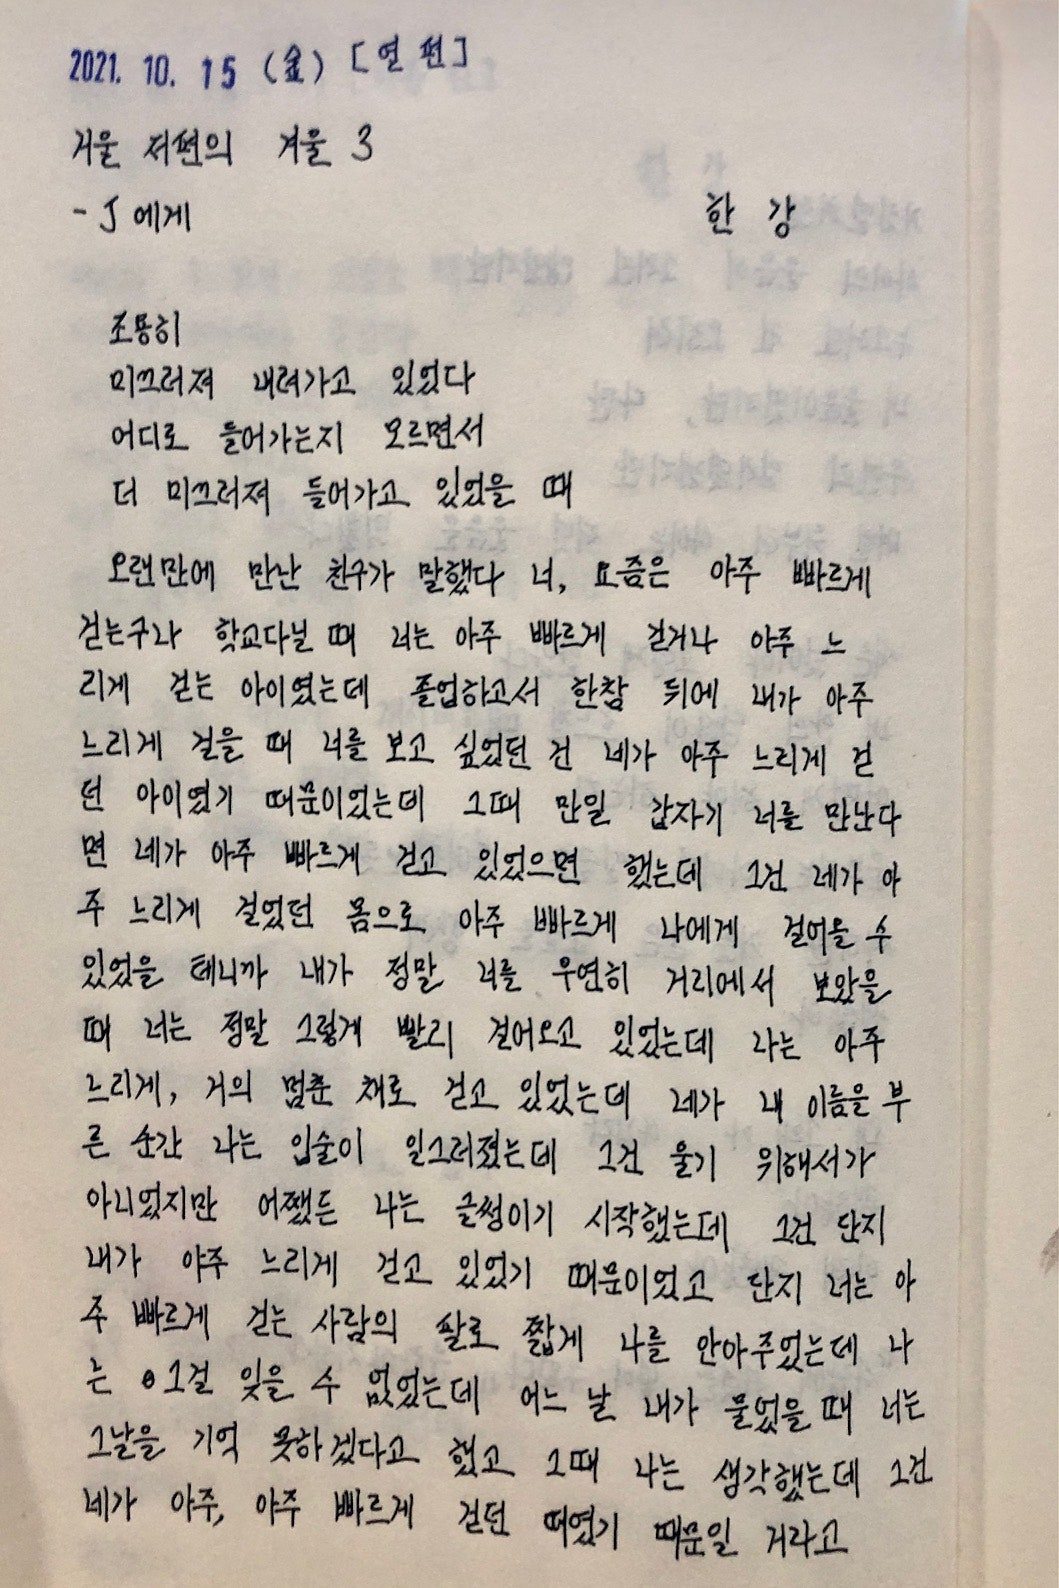 2021. 10. 15 (金) [연편]
거울 저편의 겨울 3
- J에게 한강
조용히
미끄러져 내려가고 있었다
어디로 들어가는지 모르면서
더 미끄러져 들어가고 있었을 때
오랜만에 만난 친구가 말했다 너, 요즘은 아주 빠르게
걷는구나 학교다닐 때 너는 아주 빠르게 걷거나 아주 느
리게 걷는 아이였는데 졸업하고서 한참 뒤에 내가 아주
느리게 걸을 때 너를 보고 싶었던 건 네가 아주 느리게 걷
던 아이였기 때문이었는데 그때 만일 갑자기 너를 만난다
면 네가 아주 빠르게 걷고 있었으면 했는데 그건 네가 아
주 느리게 걸었던 몸으로 아주 빠르게 나에게 걸어올 수
있었을 테니까 내가 정말 너를 우연히 거리에서 보았을
때 너는 정말 그렇게 빨리 걸어오고 있었는데 나는 아주
느리게, 거의 멈춘 채로 걷고 있었는데 네가 내 이름을 부
른 순간 나는 입술이 일그러졌는데 그건 울기 위해서가
아니었지만 어쨌든 나는 글썽이기 시작했는데 그건 단지
내가 아주 느리게 걷고 있었기 때문이었고 단지 너는 아
주 빠르게 걷는 사람의 팔로 짧게 나를 안아주었는데 나
는 그걸 잊을 수 없었는데 어느 날 내가 물었을 때 너는
그날을 기억 못하겠다고 했고 그때 나는 생각했는데 그건
네가 아주, 아주 빠르게 걷던 때였기 때문일 거라고